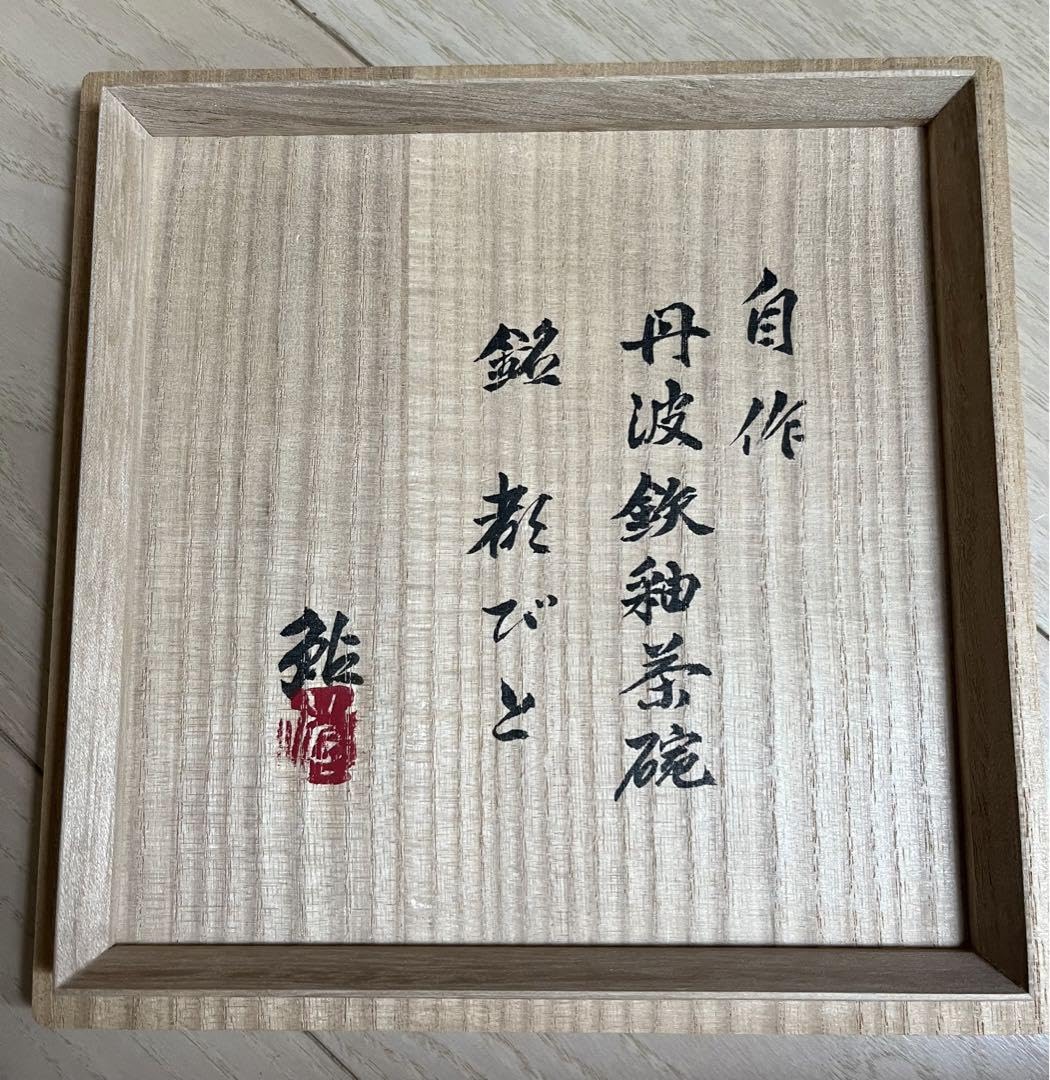 自作
丹波鉄釉茶碗
銘 都びと